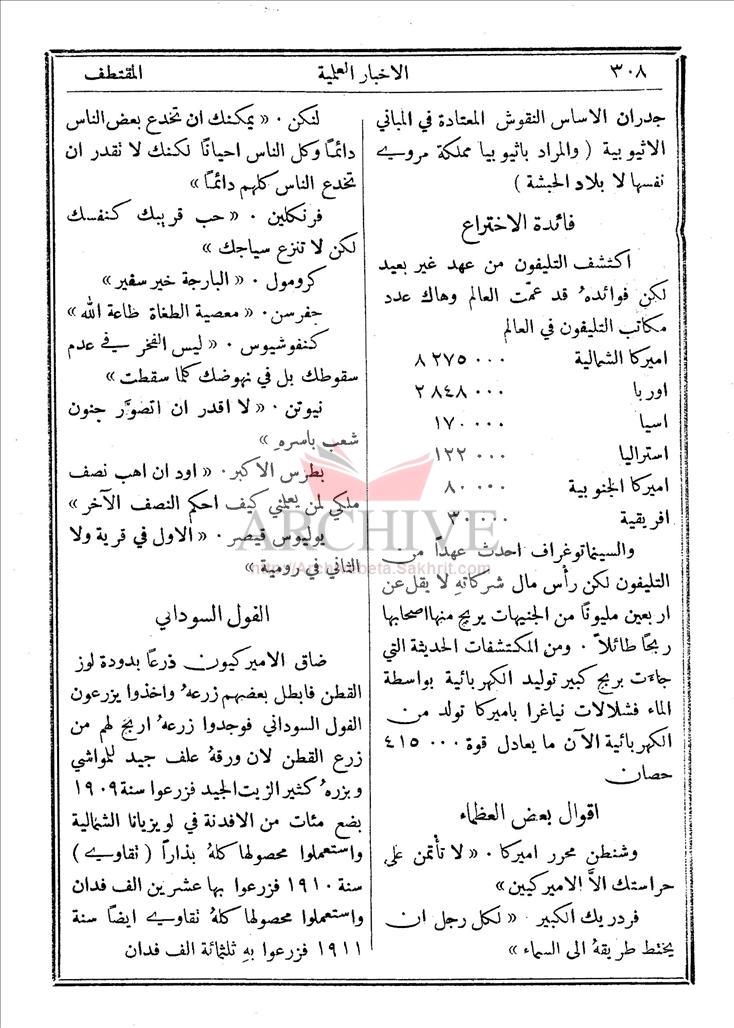 ٣٠٨ الاخبار العلمية المقتطف
جدران الاساس النقوش المعتادة في المباني
الاثيوبية ( والمراد باثيوبيا مملكة مروي
نفسها لا بلاد الحبشة )
فائدة الاختراع
اكتشف التليفون من عهد غير بعيد
لكن فوائدهُ قد عمَّت العالم وهاك عدد
مكاتب التليفون في العالم
اميركا الشمالية ٨٢٧٥٠٠٠
اوربا ٢٨٤٨٠٠٠
اسيا ١٧٠٠٠٠
استراليا ١٢٢٠٠٠
اميركا الجنوبية ٨٠٠٠٠
افريقية ٣٠٠٠٠
والسينماتوغراف احدث عهداً من
التليفون لكن رأس مال شركاتهِ لا يقل عن
اربعين مليونًا من الجنيهات يربح منها اصحابها
ربحًا طائلاً ٠ ومن المكتشفات الحديثة التي
جاءَت بربح كبير توليد الكهربائية بواسطة
الماء فشلالات نياغرا باميركا تولد من
الكهربائية الآن ما يعادل قوة ٤١٥٠٠٠
حصان
اقوال بعض العظماء
وشنطن محرر اميركا ٠ « لا تأْتمن على
حراستك الاَّ الاميركيين »
فردريك الكبير ٠ « لكل رجل ان
يختط طريقهُ الى السماء »
لنكن ٠ « يمكنك ان تخدع بعض الناس
دائمًا وكل الناس احيانًا لكنك لا تقدر ان
تخدع الناس كلهم دائمًا »
فرنكلين ٠ « حب قريبك كنفسك
لكن لا تنزع سياجك »
كرومول ٠ « البارجة خير سفير »
جفرسن ٠ « معصية الطغاة طاعة الله »
كنفوشيوس ٠ « ليس الفخر في عدم
سقوطك بل في نهوضك كلما سقطت »
نيوتن ٠ « لا اقدر ان اتصوَّر جنون
شعب باسرهِ »
بطرس الاكبر ٠ « اود ان اهب نصف
ملكي لمن يعلمني كيف احكم النصف الآخر »
يوليوس قيصر ٠ « الاول في قرية ولا
الثاني في رومية »
الفول السوداني
ضاق الاميركيون ذرعًا بدودة لوز
القطن فابطل بعضهم زرعهُ واخذوا يزرعون
الفول السوداني فوجدوا زرعهُ اربح لهم من
زرع القطن لان ورقهُ علف جيد للمواشي
وبزرهُ كثير الزيت الجيد فزرعوا سنة ١٩٠٩
بضع مئات من الافدنة في لويزيانا الشمالية
واستعملوا محصولها كلهُ بذاراً ( تقاوي )
سنة ١٩١٠ فزرعوا بها عشرين الف فدان
واستعملوا محصولها كلهُ تقاوي ايضًا سنة
١٩١١ فزرعوا بهِ ثلثمائة الف فدان
ARCHIVE
http://Archivebeta.Sakhrit.com